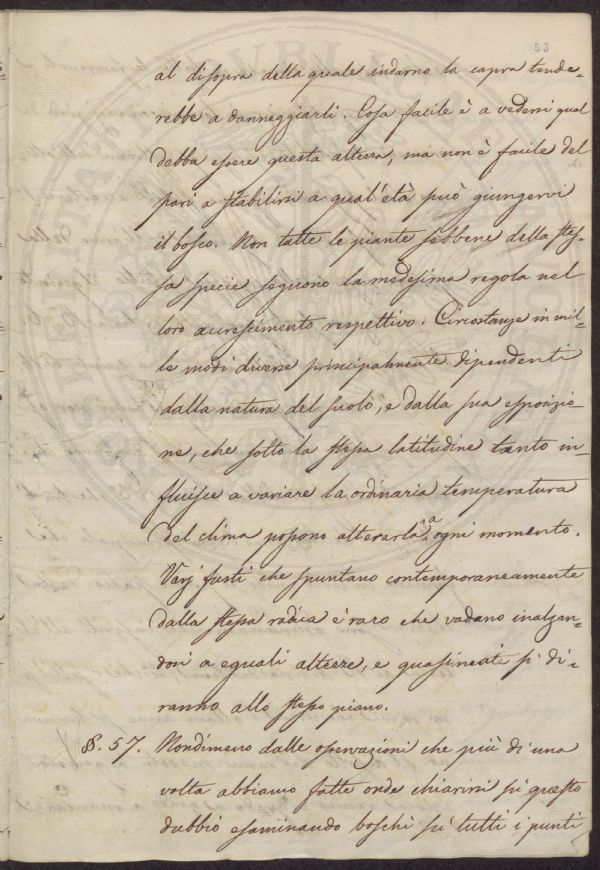 53
al disopra della quale indarno la capra tende-
rebbe a danneggiarli. Cosa facile è a vedersi qual
debba essere questa altezza, ma non è facile del
pari a stabilirsi a qual'età può giungervi
il bosco. Non tutte le piante sebbene della stes-
sa specie seguono la medesima regola nel
loro accrescimento respettivo. Circostanze in mil-
le modi diverse principalmente dipendenti
dalla natura del suolo, e dalla sua esposizio-
ne, che sotto la stessa latitudine tanto in-
fluisce a variare la ordinaria temperatura
del clima possono alterarla a ogni momento.
Varj fusti che spuntano contemporaneamente
dalla stessa radica è raro che vadano inalzan-
dosi a eguali altezze, e quasi si di-
ranno allo stesso piano.
§. 57. Nondimeno dalle osservazioni che più di una
volta abbiamo fatte onde chiarirsi su questo
dubbio esaminando boschi su tutti i punti